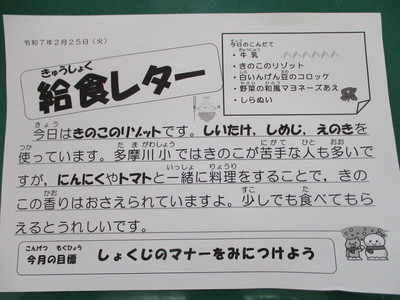 令和7年2月25日(火)
きゅうしょく
給食レター
今日のこんだて
・牛乳
・きのこのリゾット
・白いんげん豆のコロッケ
・野菜の和風マヨネーズあえ
・しらぬい
きょう
今日はきのこのリゾットです。しいたけ，しめじ，えのきを
つか たまがわしょう にがて ひと おお
使っています。多摩川小ではきのこが苦手な人も多いで
いっしょ りょうり
すが，にんにくやトマトと一緒に料理をすることで，きの
かお すこ た
この香りはおさえられていますよ。少しでも食べてもら
えるとうれしいです。
こんげつ もくひょう
今月の目標 しょくじのマナーをみにつけよう